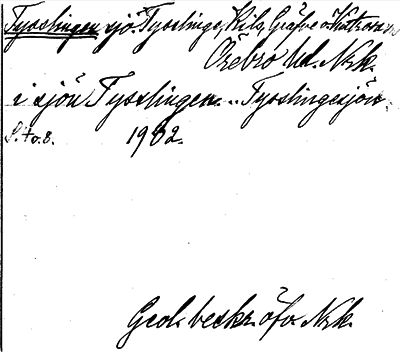 Tysslingen, sjö. Tysslinge, Kils, Gräfve o. Kattorsms
Örebro hd. Nrk.
i sjön Tysslingen. .. Tysslingesjön.
S. 7 o. 8. 1902.
Geol. beskr. öfv. Nrk.